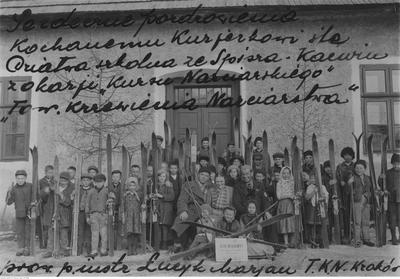 Serdeczne pozdrowienia
Kochanemu Kurjerkowi śle
Dziatwa szkolna ze Spisza - Kacwin
z okazji „Kursu Narciarskiego"
„Tow. Krzewienia Narciarstwa"
prow. p. instr. Lucyk T.K.N. Kraków